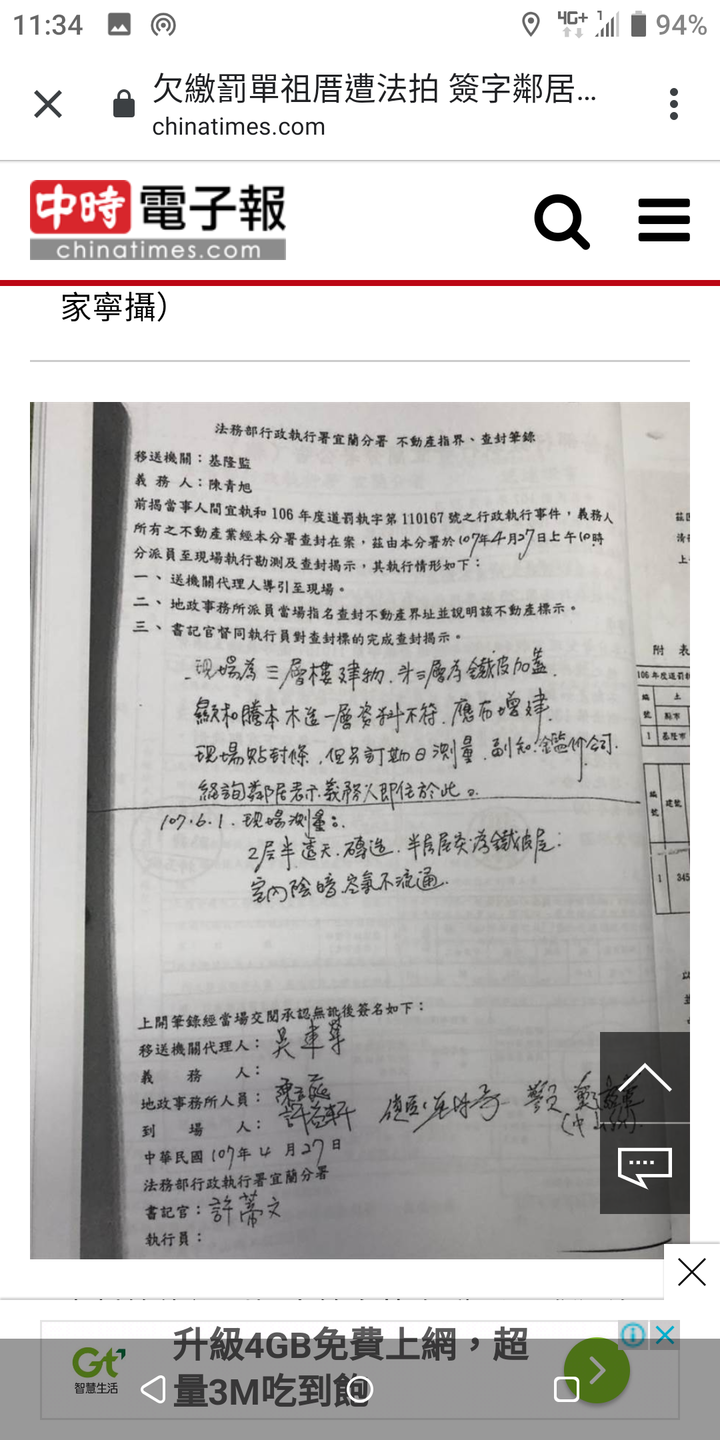 11:34
4G+ 1 94%
欠繳罰單祖厝遭法拍 簽字鄰居...
chinatimes.com
中時 電子報
chinatimes.com
家寧攝）
法務部行政執行署宜蘭分署 不動產指界、查封筆錄
移送機關：基隆監
義 務 人：陳青旭
前揭當事人間宜執和 106 年度道罰執字第 110167 號之行政執行事件，義務人
所有之不動產業經本分署查封在案，茲由本分署於107年4月27日上午10時
分派員至現場執行勘測及查封揭示，其執行情形如下：
一、送機關代理人導引至現場。
二、地政事務所派員當場指名查封不動產界址並說明該不動產標示。
三、書記官督同執行員對查封標的完成查封揭示。
現場為三層樓建物，第三層為鐵皮加蓋，
顯和謄本木造一層資料不符，應有增建。
現場貼封條，但另訂勘日測量，副知鑑價公司。
經詢鄰居表示義務人即住於此。
107.6.1.現場測量：
2层半透天，磚造，半层屋為鐵皮屋：
室內陰暗，空氣不流通。
上開筆錄經當場交閱承認無訛後簽名如下：
移送機關代理人：
義 務 人：
地政事務所人員：
到 場 人：
中華民國107年4月27日
法務部行政執行署宜蘭分署
書記官：
執行員：
附 表
106 年度道罰
編 土
號 縣市
1 基隆市
編 建號
號
1 345
Gt
智慧生活
升級4GB免費上網，超
量3M吃到飽